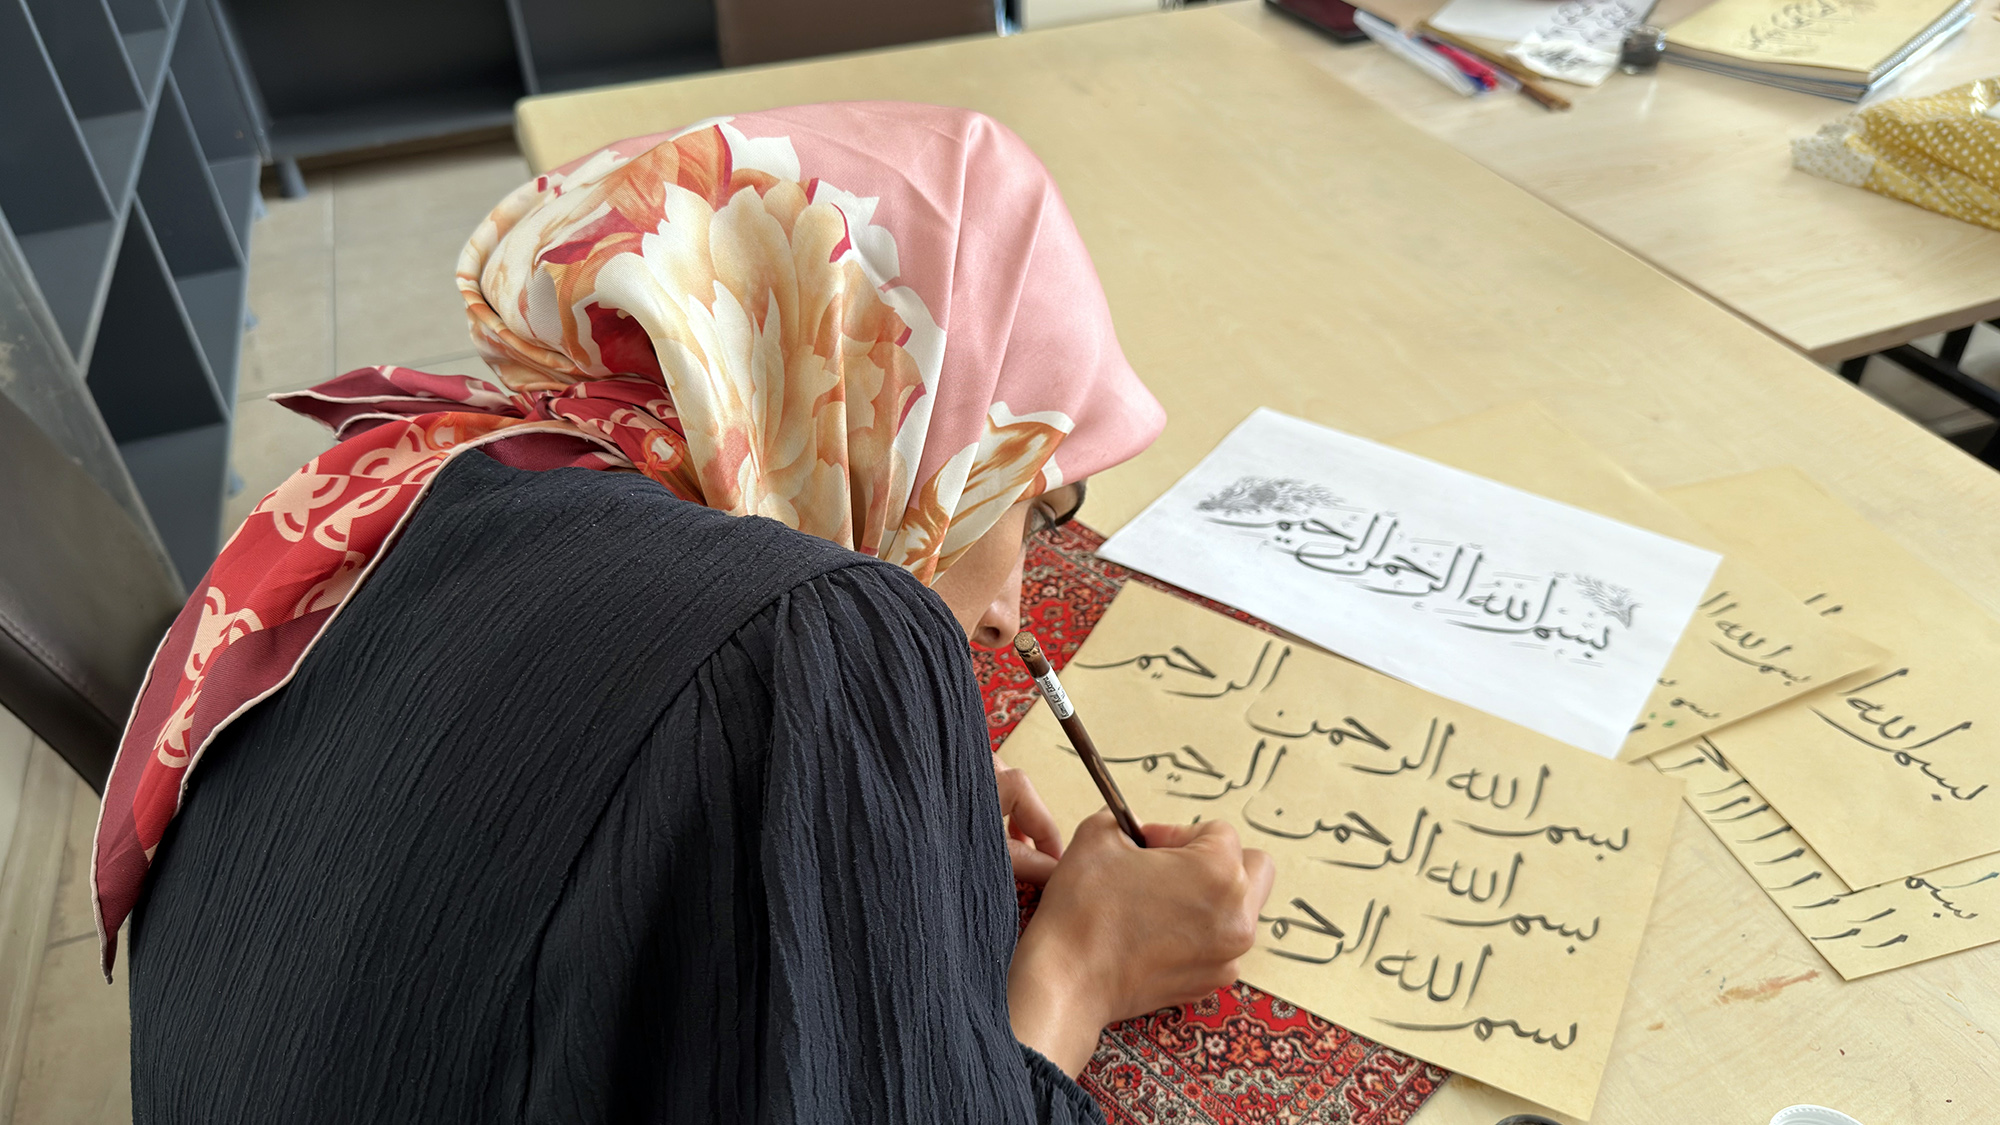 بِسْمِ اللَّهِ الرَّحْمَنِ الرَّحِيمِ
بسم الله الرحمن الرحيم
بسم الله الرحمن الرحيم
بسم الله
بسم الله
بسم
بسم الله
بسم